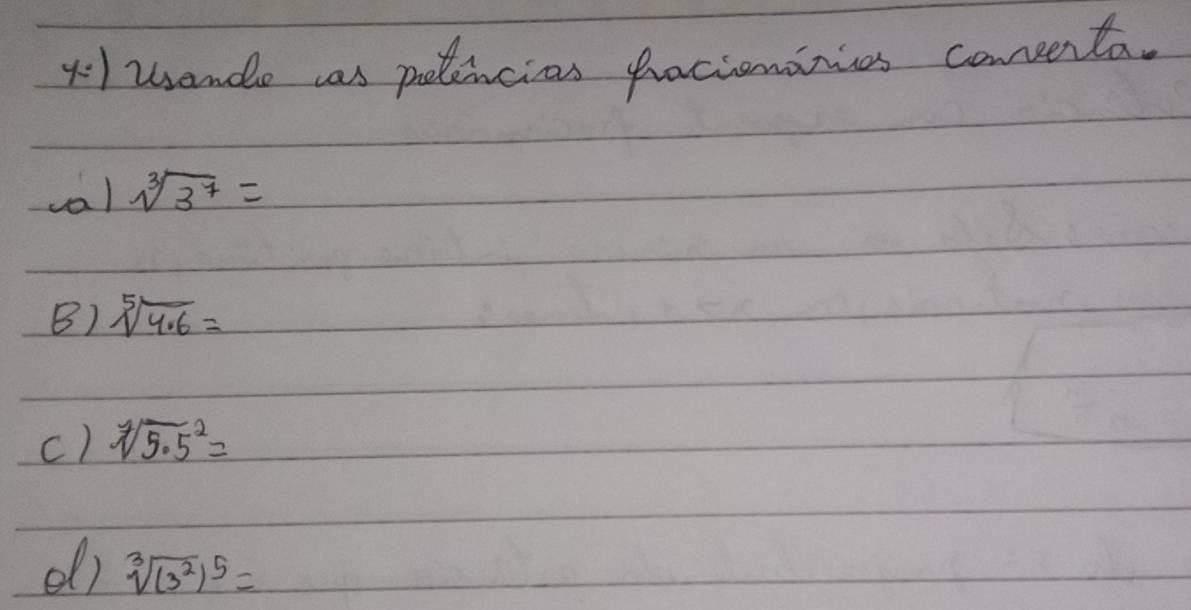 4:) Usando as potências fracionárias converta.
a) ∛3⁷ =
B) ⁵√4.6 =
C) ⁷√5.5² =
d) ∛(3²)⁵ =